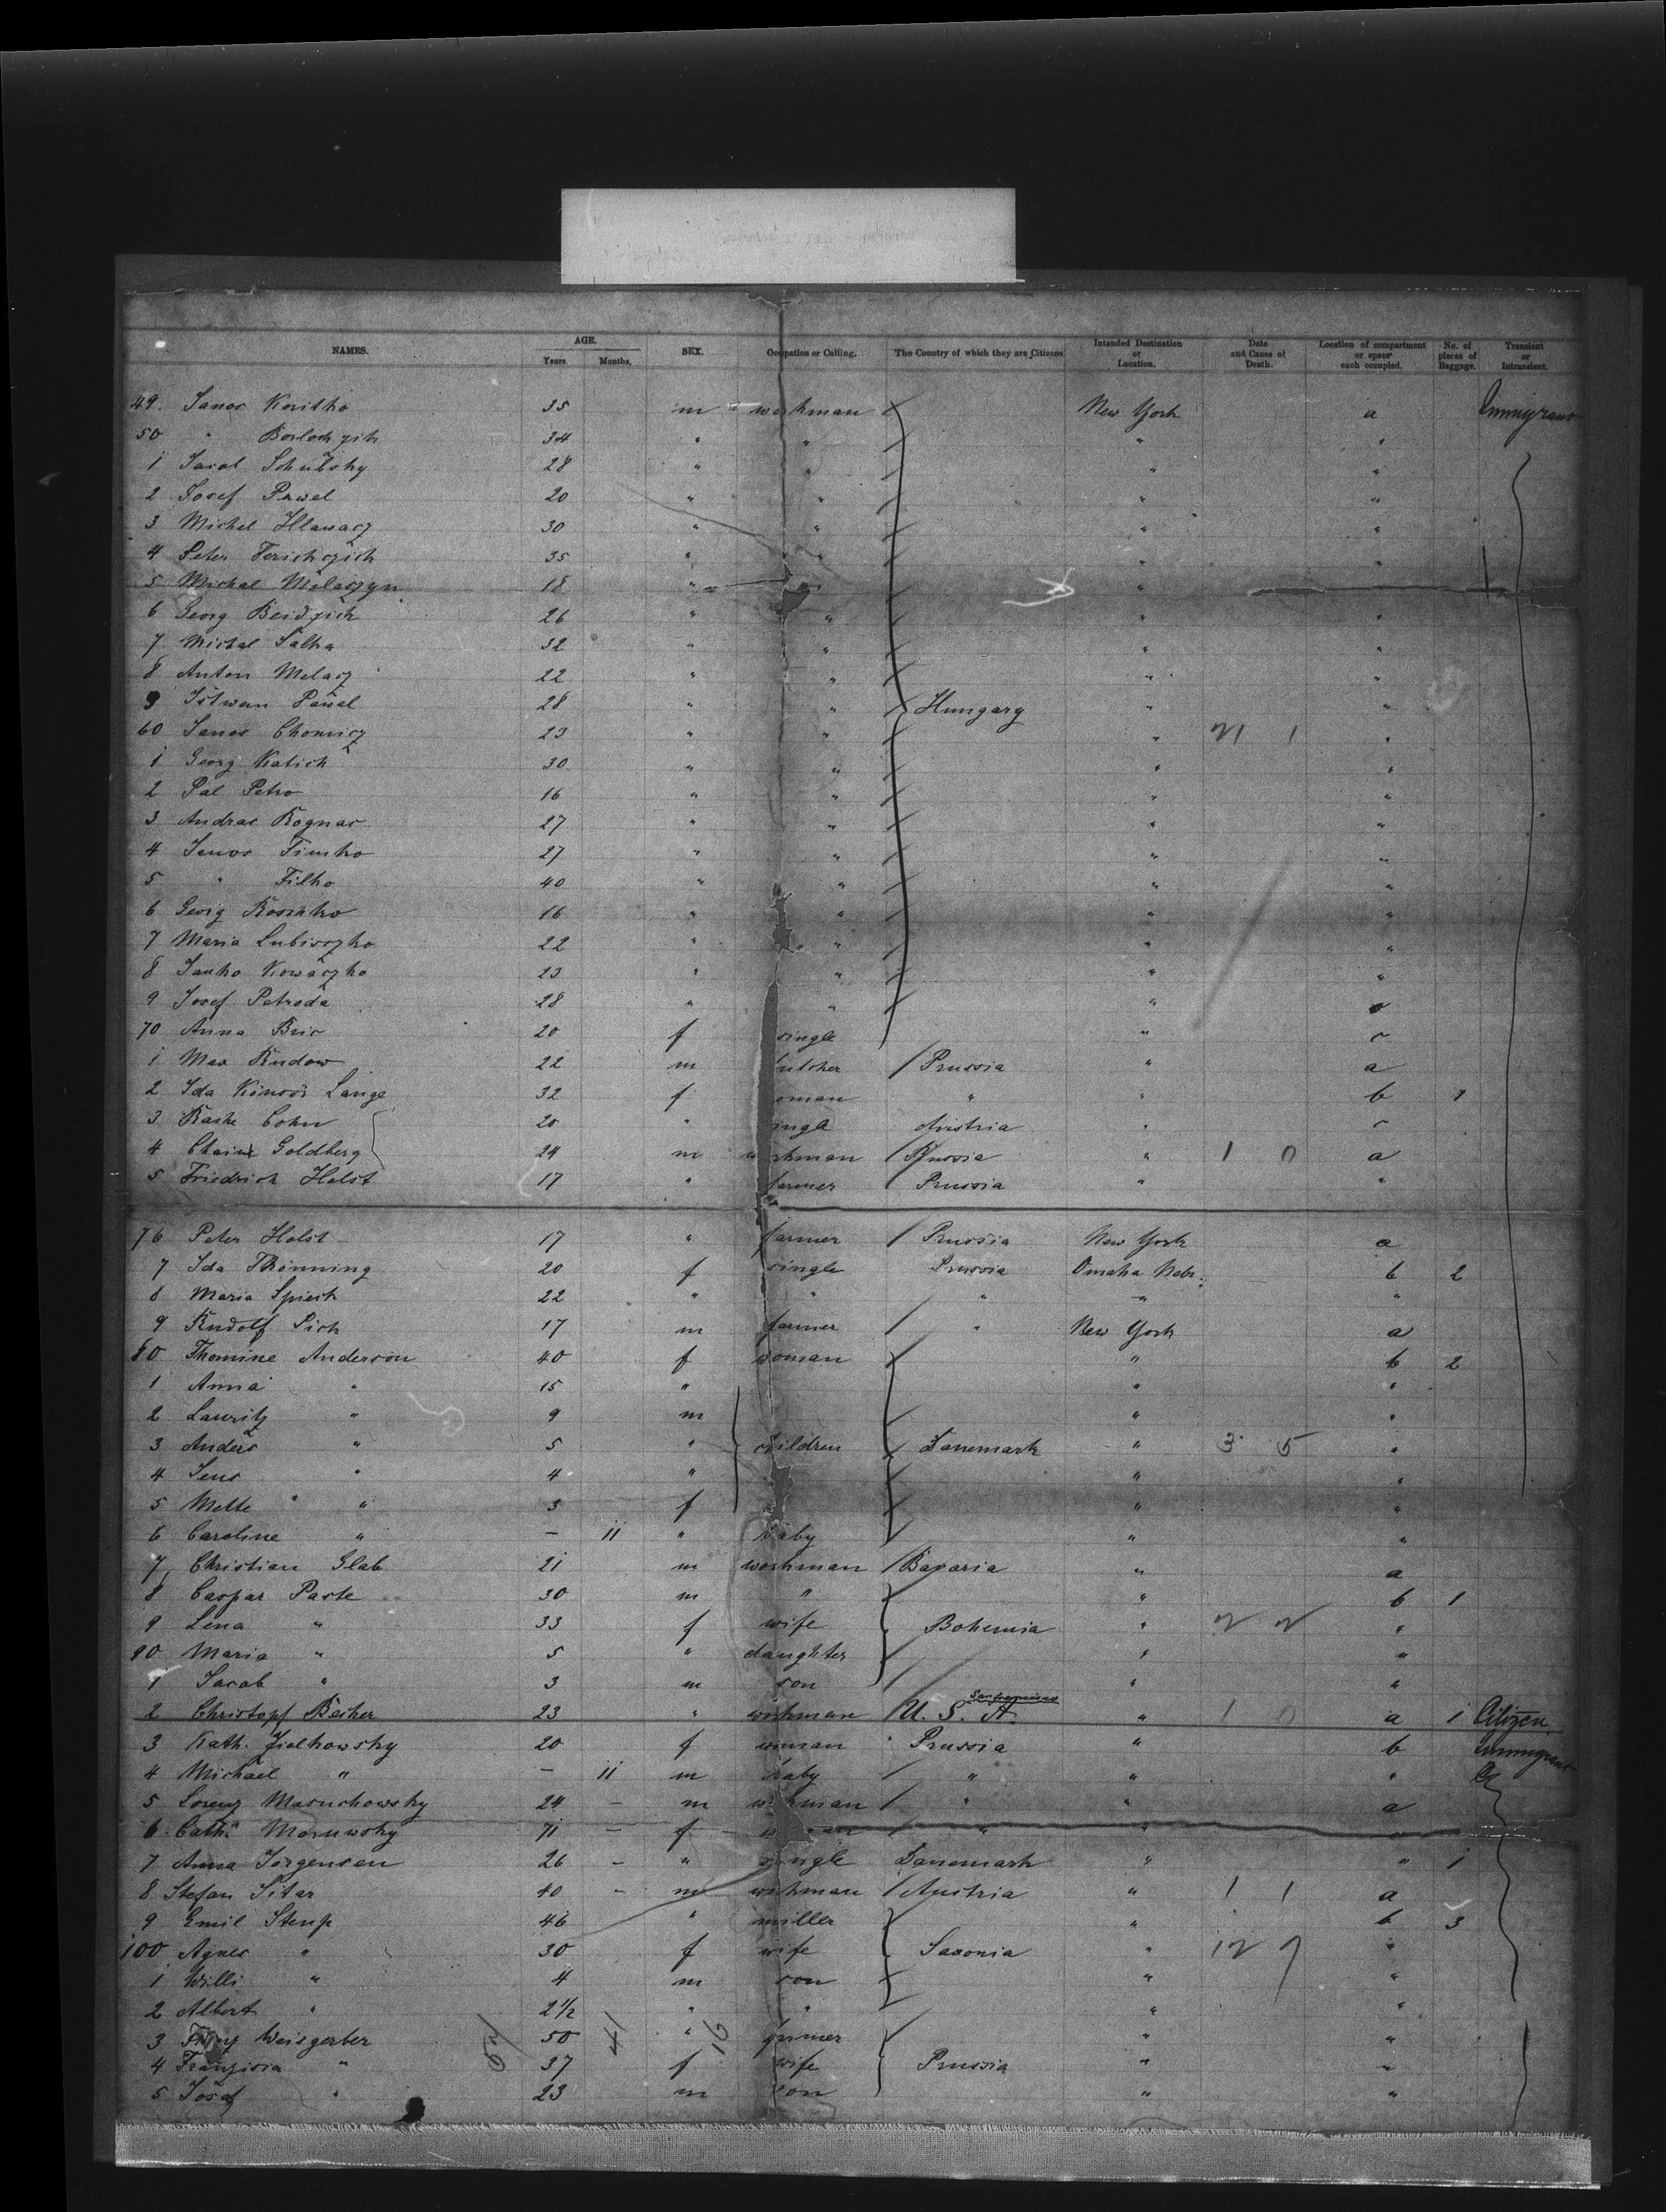 NAMES. AGE. Years. Months. SEX. Occupation or Calling. The Country of which they are Citizens. Intended Destination or Location. Date and Cause of Death. Location of compartment or space each occupied. No. of pieces of Baggage. Transient or Intransient.
49. Janos Koritko 35 m workman New York a Immigrant
50 " 34 " " " "
1 Jacob Schubsky 28 " " " "
2 Josef Pawel 20 " " " "
3 Michel Hlawacz 30 " " " "
4 Peter 35 " " " "
5 Michal Molaczyn 18 " "
6 Georg Beidzich 26 " " " "
7 Michal Salka 32 " " " "
8 Anton Melacz 22 " " " "
9 Istwan Panel 28 " " Hungary " "
60 Janos Chomicz 23 " " " 21 1 "
1 Georg Katich 30 " " " "
2 Pal Petro 16 " " " "
3 Andras Rognar 27 " " " "
4 Janos Timko 27 " " " "
5 " Filko 40 " " " "
6 Georg Rosinko 16 " " " "
7 Maria Lubisczko 22 " " " "
8 Janko Kowaczko 23 " " " "
9 Josef Petroda 28 " " "
70 Anna Bric 20 f single " c
1 Max Rudow 22 m butcher Prussia " a
2 Ida Lange 32 f woman " " b 1
3 Raske Cohn 20 " single Austria " c
4 Chaim Goldberg 24 m workman Russia " 1 0 a
5 Friedrich Holst 17 " farmer Prussia " "
76 Peter Holst 17 " farmer Prussia New York a
7 Ida Thönning 20 f single Prussia Omaha Nebr. b 2
8 Maria Spieck 22 " " " " "
9 Rudolf Pich 17 m farmer " New York a
80 Thomine Anderson 40 f woman " b 2
1 Anna " 15 " " "
2 Lauritz " 9 m " "
3 Anders " 5 " children Danemark " 3 5 "
4 Jens " 4 " " "
5 Mette " 3 f " "
6 Caroline " – 11 " baby " "
7 Christian Glab 21 m workman Bavaria " a
8 Caspar Paste 30 m " " b 1
9 Lena " 33 f wife Bohemia " 2 2 "
90 Maria " 5 " daughter " "
1 Jacob " 3 m son " "
San francisco
2 Christopf Beiker 23 " workman U. S. A. " 1 0 a 1 Citizen
3 Kath. Zielkowsky 20 f woman Prussia " b Immigrant
4 Michael " – 11 m baby " " "
5 Lorenz Masuchowsky 24 – m workman " " a
6 Cath. Moruwsky 71 – f woman " "
7 Anna Jörgensen 26 – " single Danemark " " 1
8 Stefan Sitar 40 – m workman Austria " 1 1 a
9 Emil Stenp 46 " miller " b 3
100 Agnes " 30 f wife Saxonia " 12 7 "
1 Willi " 4 m son " "
2 Albert " 2 1/2 " " " "
3 Franz Weisgerber 50 " farmer " "
4 Franzisia " 37 f wife Prussia " "
5 Josef " 23 m son " "
57 41 16